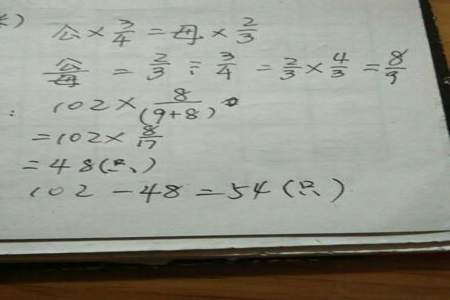 公×3/4=母×2/3
公/母=2/3÷3/4=2/3×4/3=8/9
:102×8/(9+8)
=102×8/17
=48(只)
102-48=54(只)